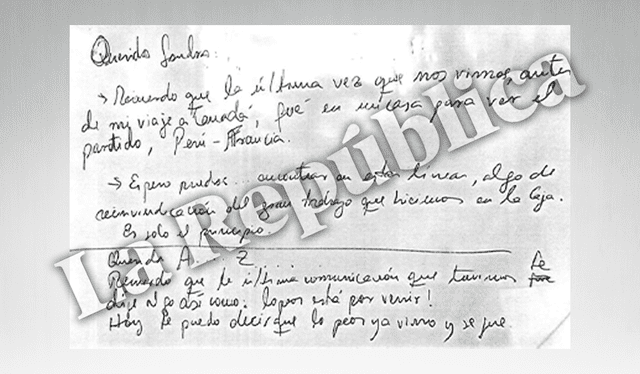 Querida Sandra:
→ Recuerdo que la última vez que nos vimos, antes
de mi viaje a Canadá, fué en mi casa para ver el
partido, Perú - Francia.
→ Espero puedas... encontrar en estas líneas, algo de
reinvindicación del gran trabajo que hicimos en la Caja.
Es solo el principio.
Querida A. Z
Recuerdo que la última comunicación que tuvimos te
dije algo así como: lo peor está por venir!
Hoy te puedo decir que lo peor ya vino y se fue.
La República